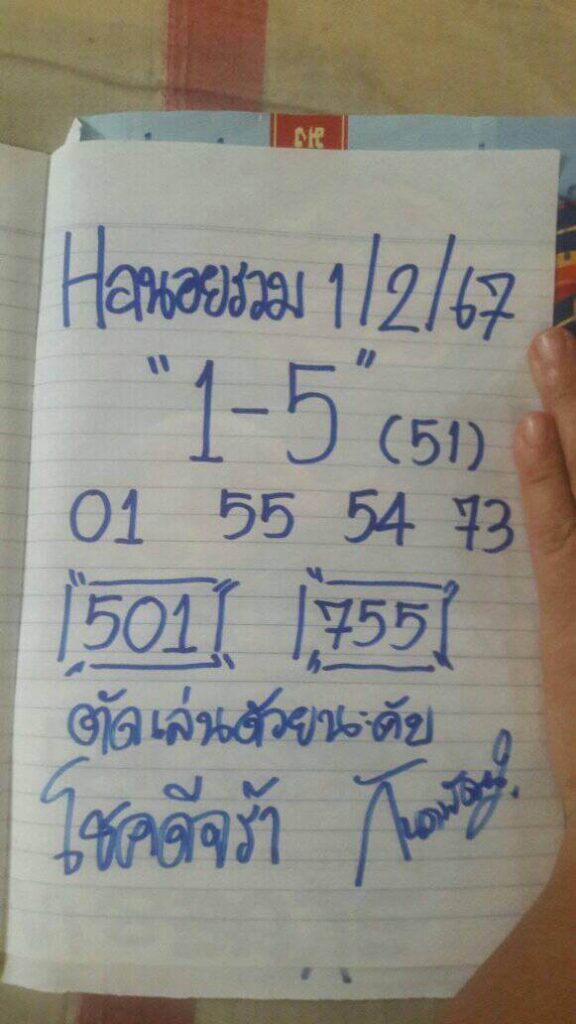 Hลนอยรวม 1/2/67
"1-5" (51)
01 55 54 73
501 755
ตัดเล่นด้วยนะคับ
โชคดีจร้า